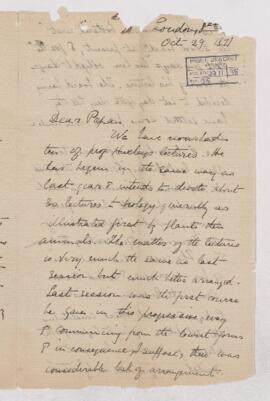 London
Oct 29. 1871
Dear Papa,
We have now had
ten of prof Huxley's lectures. He
has begun in the same way as
last year & intends to devote about
lectures to biology generally as
illustrated first by plants then
animals. The matter of the lectures
is very much the same as last
session but much better arranged.
Last session was the first course
he gave in this progressive way
of commencing from the lowest forms
& in consequence I suppose, there was
considerable lack of arrangement